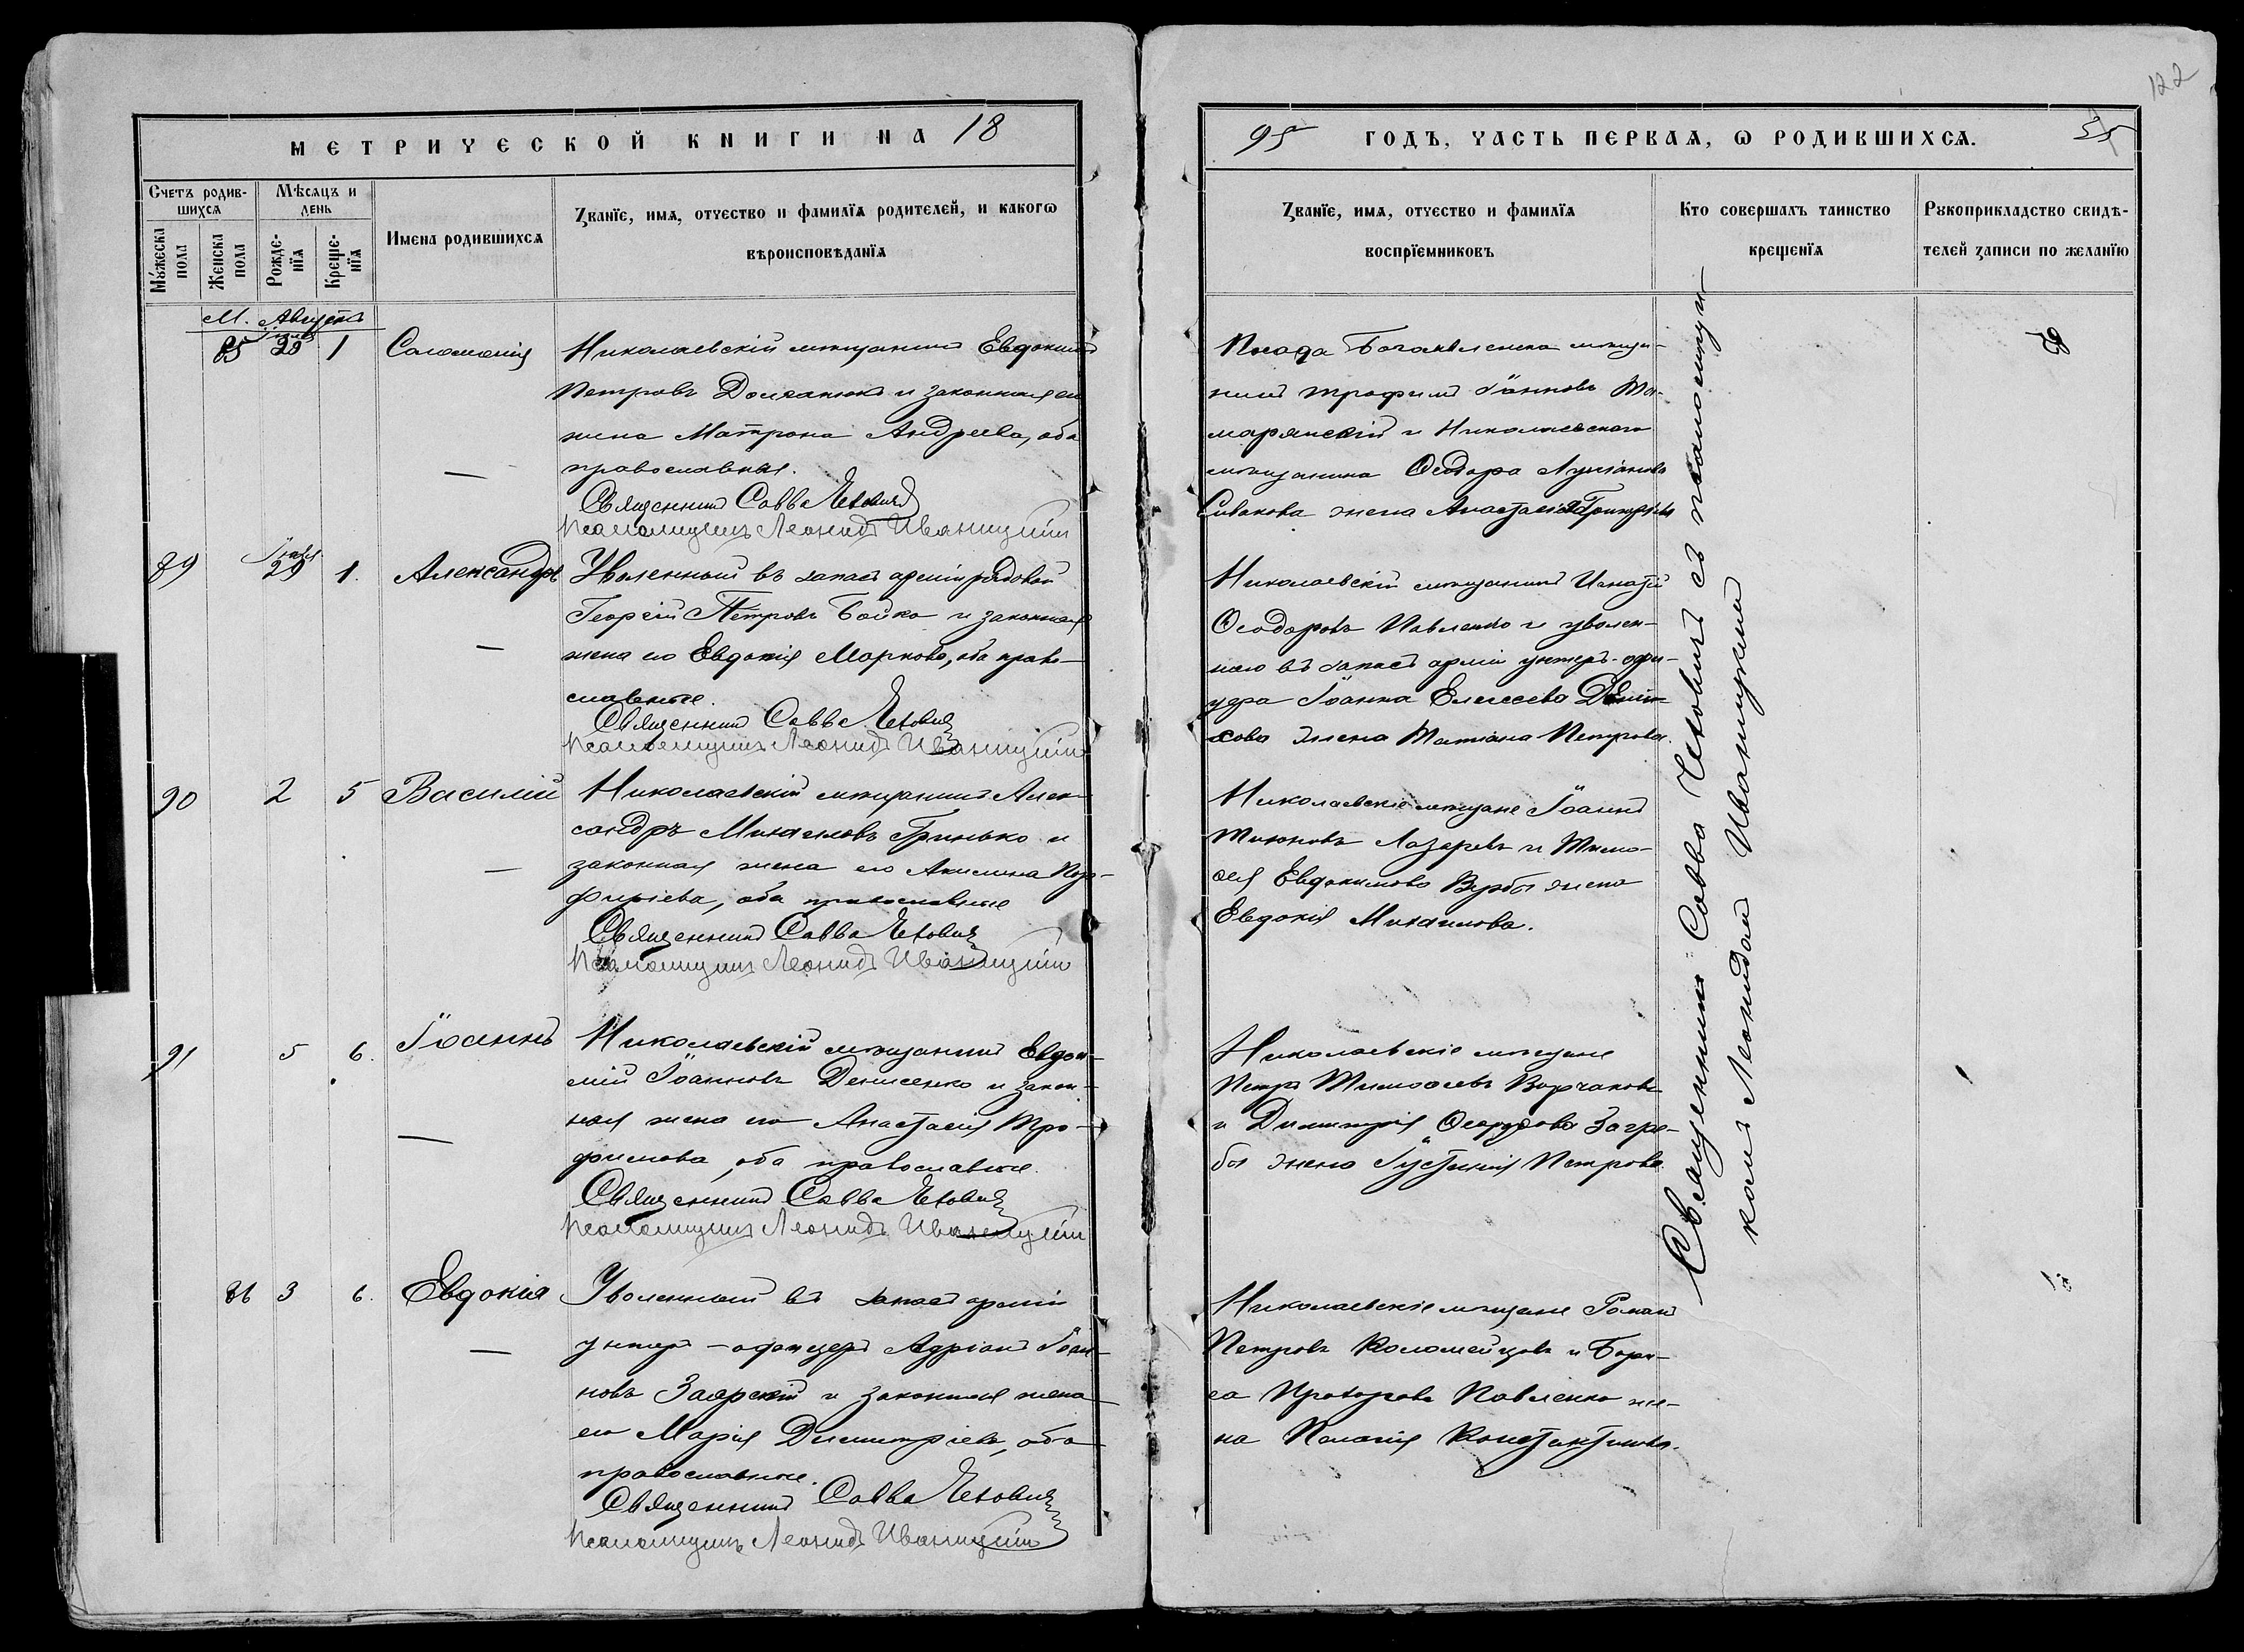 122
МЕТРИЧЕСКОЙ КНИГИ НА 18
95 ГОДЪ, ЧАСТЬ ПЕРВАѦ, Ѡ РОДИВШИХСѦ. 55
Счетъ родив-
шихсѧ
Мѣсѧцъ и
день
Мꙋжеска
пола
Женска
пола
Рожде-
нїѧ
Креще-
нїѧ
Имена родившихсѧ
Званїе, имѧ, отчество и фамилїѧ родителей, и какогѡ
вѣроисповѣданїѧ
Званїе, имѧ, отчество и фамилїѧ
воспрїемниковъ
Кто совершалъ таинство
крещенїѧ
Рꙋкоприкладство свидѣ-
телей записи по желанїю
М. Августъ
85 1 Соломонія
Николаевскій мѣщанинъ Евдокимъ
Петровъ и законная его
жена Матрона Андреева, оба
православные.
Священникъ Савва Чехович
Псаломщикъ Леонидъ Иваницкій
Посада Богоявленска мѣща-
нинъ Трофимъ Іоанновъ
и Николаевскаго
мѣщанина Ѳеодора Лукіанова
Сивакова жена Анастасія
89 Іюля 29 1. Александръ
Уволенный въ запасъ арміи рядовой
Георгій Петровъ Бойко и законная
жена его Евдокія Маркова, оба право-
славные.
Священникъ Савва Чехович
Псаломщикъ Леонидъ Иваницкій
Николаевскій мѣщанинъ Игнатій
Ѳеодоровъ Павленко и уволен-
наго въ запасъ арміи унтеръ-офи-
цера Іоанна Елисеева
жена Татіана Петрова.
90 2 5 Василій
Николаевскій мѣщанинъ Алек-
сандръ Михаиловъ Гринько и
законная жена его Акилина Пор-
фиріева, оба православные
Священникъ Савва Чехович
Псаломщикъ Леонидъ Иваницкій
Николаевскіе мѣщане Іоаннъ
Лазаревъ и Тимо-
ѳея Евдокимова Вербы жена
Евдокія Михаилова.
91 5 6. Іоаннъ
Николаевскій мѣщанинъ
Іоанновъ Денисенко и закон-
ная жена его Анастасія Тро-
фимова, оба православные.
Священникъ Савва Чехович
Псаломщикъ Леонидъ Иваницкій
Николаевскіе мѣщане
Петръ Тимоѳеевъ
и Димитрія Загре-
бы жена Іустинія Петрова
86 3 6. Евдокія
Уволенный въ запасъ арміи
унтеръ-офицеръ Адріанъ Іоан-
новъ Заярскій и законная жена
его Марія Димитріева, оба
православные.
Священникъ Савва Чехович
Псаломщикъ Леонидъ Иваницкій
Николаевскіе мѣщане Романъ
Петровъ Коломейцовъ и Бори-
са Прохорова Павленко же-
на Пелагія Константинова.
Священникъ Савва Чеховичъ съ псаломщи-
комъ Леонидомъ Иваницкимъ